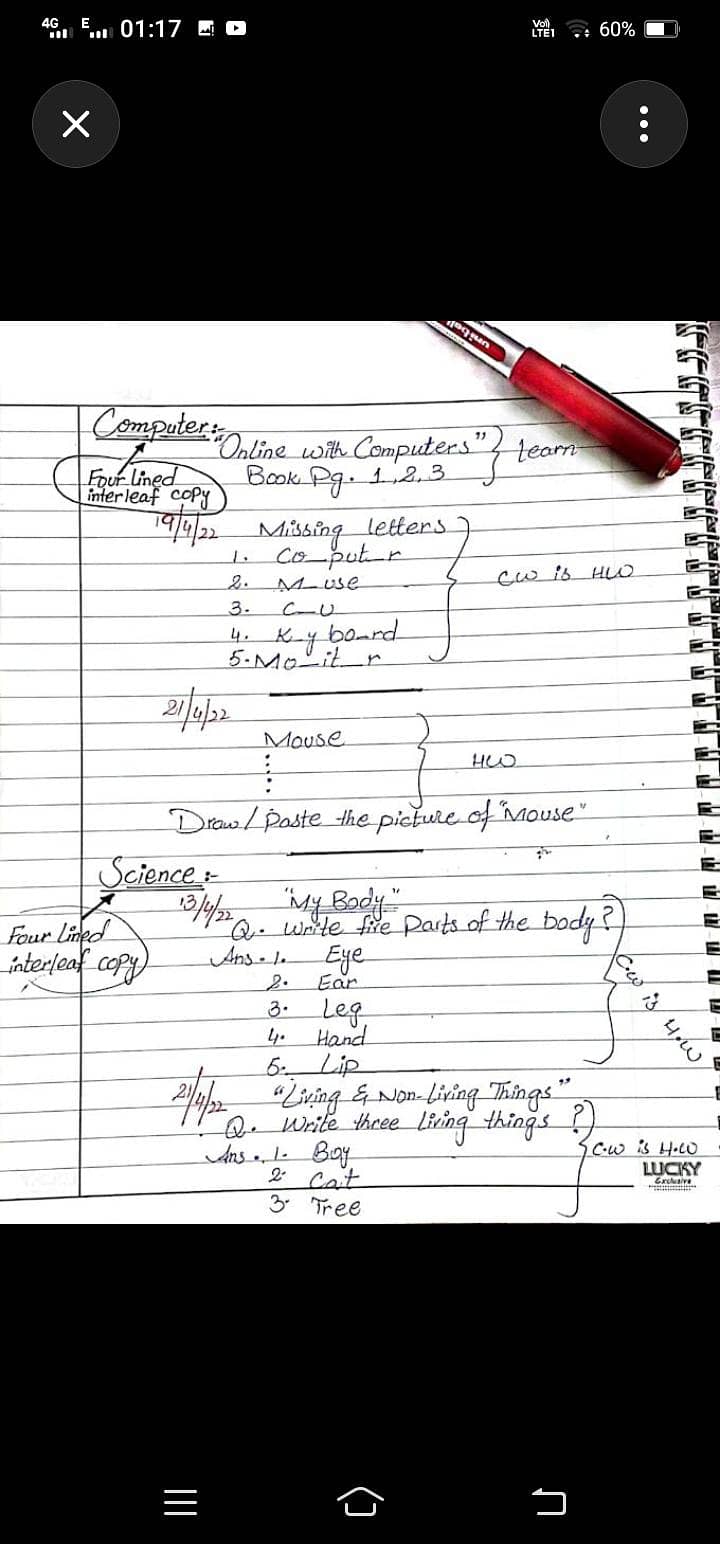 4G E 01:17 Vo)) LTE1 60%
uni ball
Computer:-
"Online with Computers" } Learn
Book Pg. 1,2,3
Four Lined
interleaf copy
19/4/22 Missing letters
1. Co_put_r
2. M_use CW is HW
3. C_U
4. K_y bo_rd
5. Mo_it_r
21/4/22
Mouse
HW
Draw / Paste the picture of "Mouse"
Science :-
13/4/22 "My Body"
Q. Write five Parts of the body?
Four Lined
interleaf copy
Ans. 1. Eye
2. Ear
3. Leg
4. Hand
5. Lip
C.W is H.W
21/4/22 "Living & Non-Living Things"
Q. Write three living things ?
Ans. 1. Boy C.W is H.W
2. Cat
3. Tree
LUCKY
Exclusive